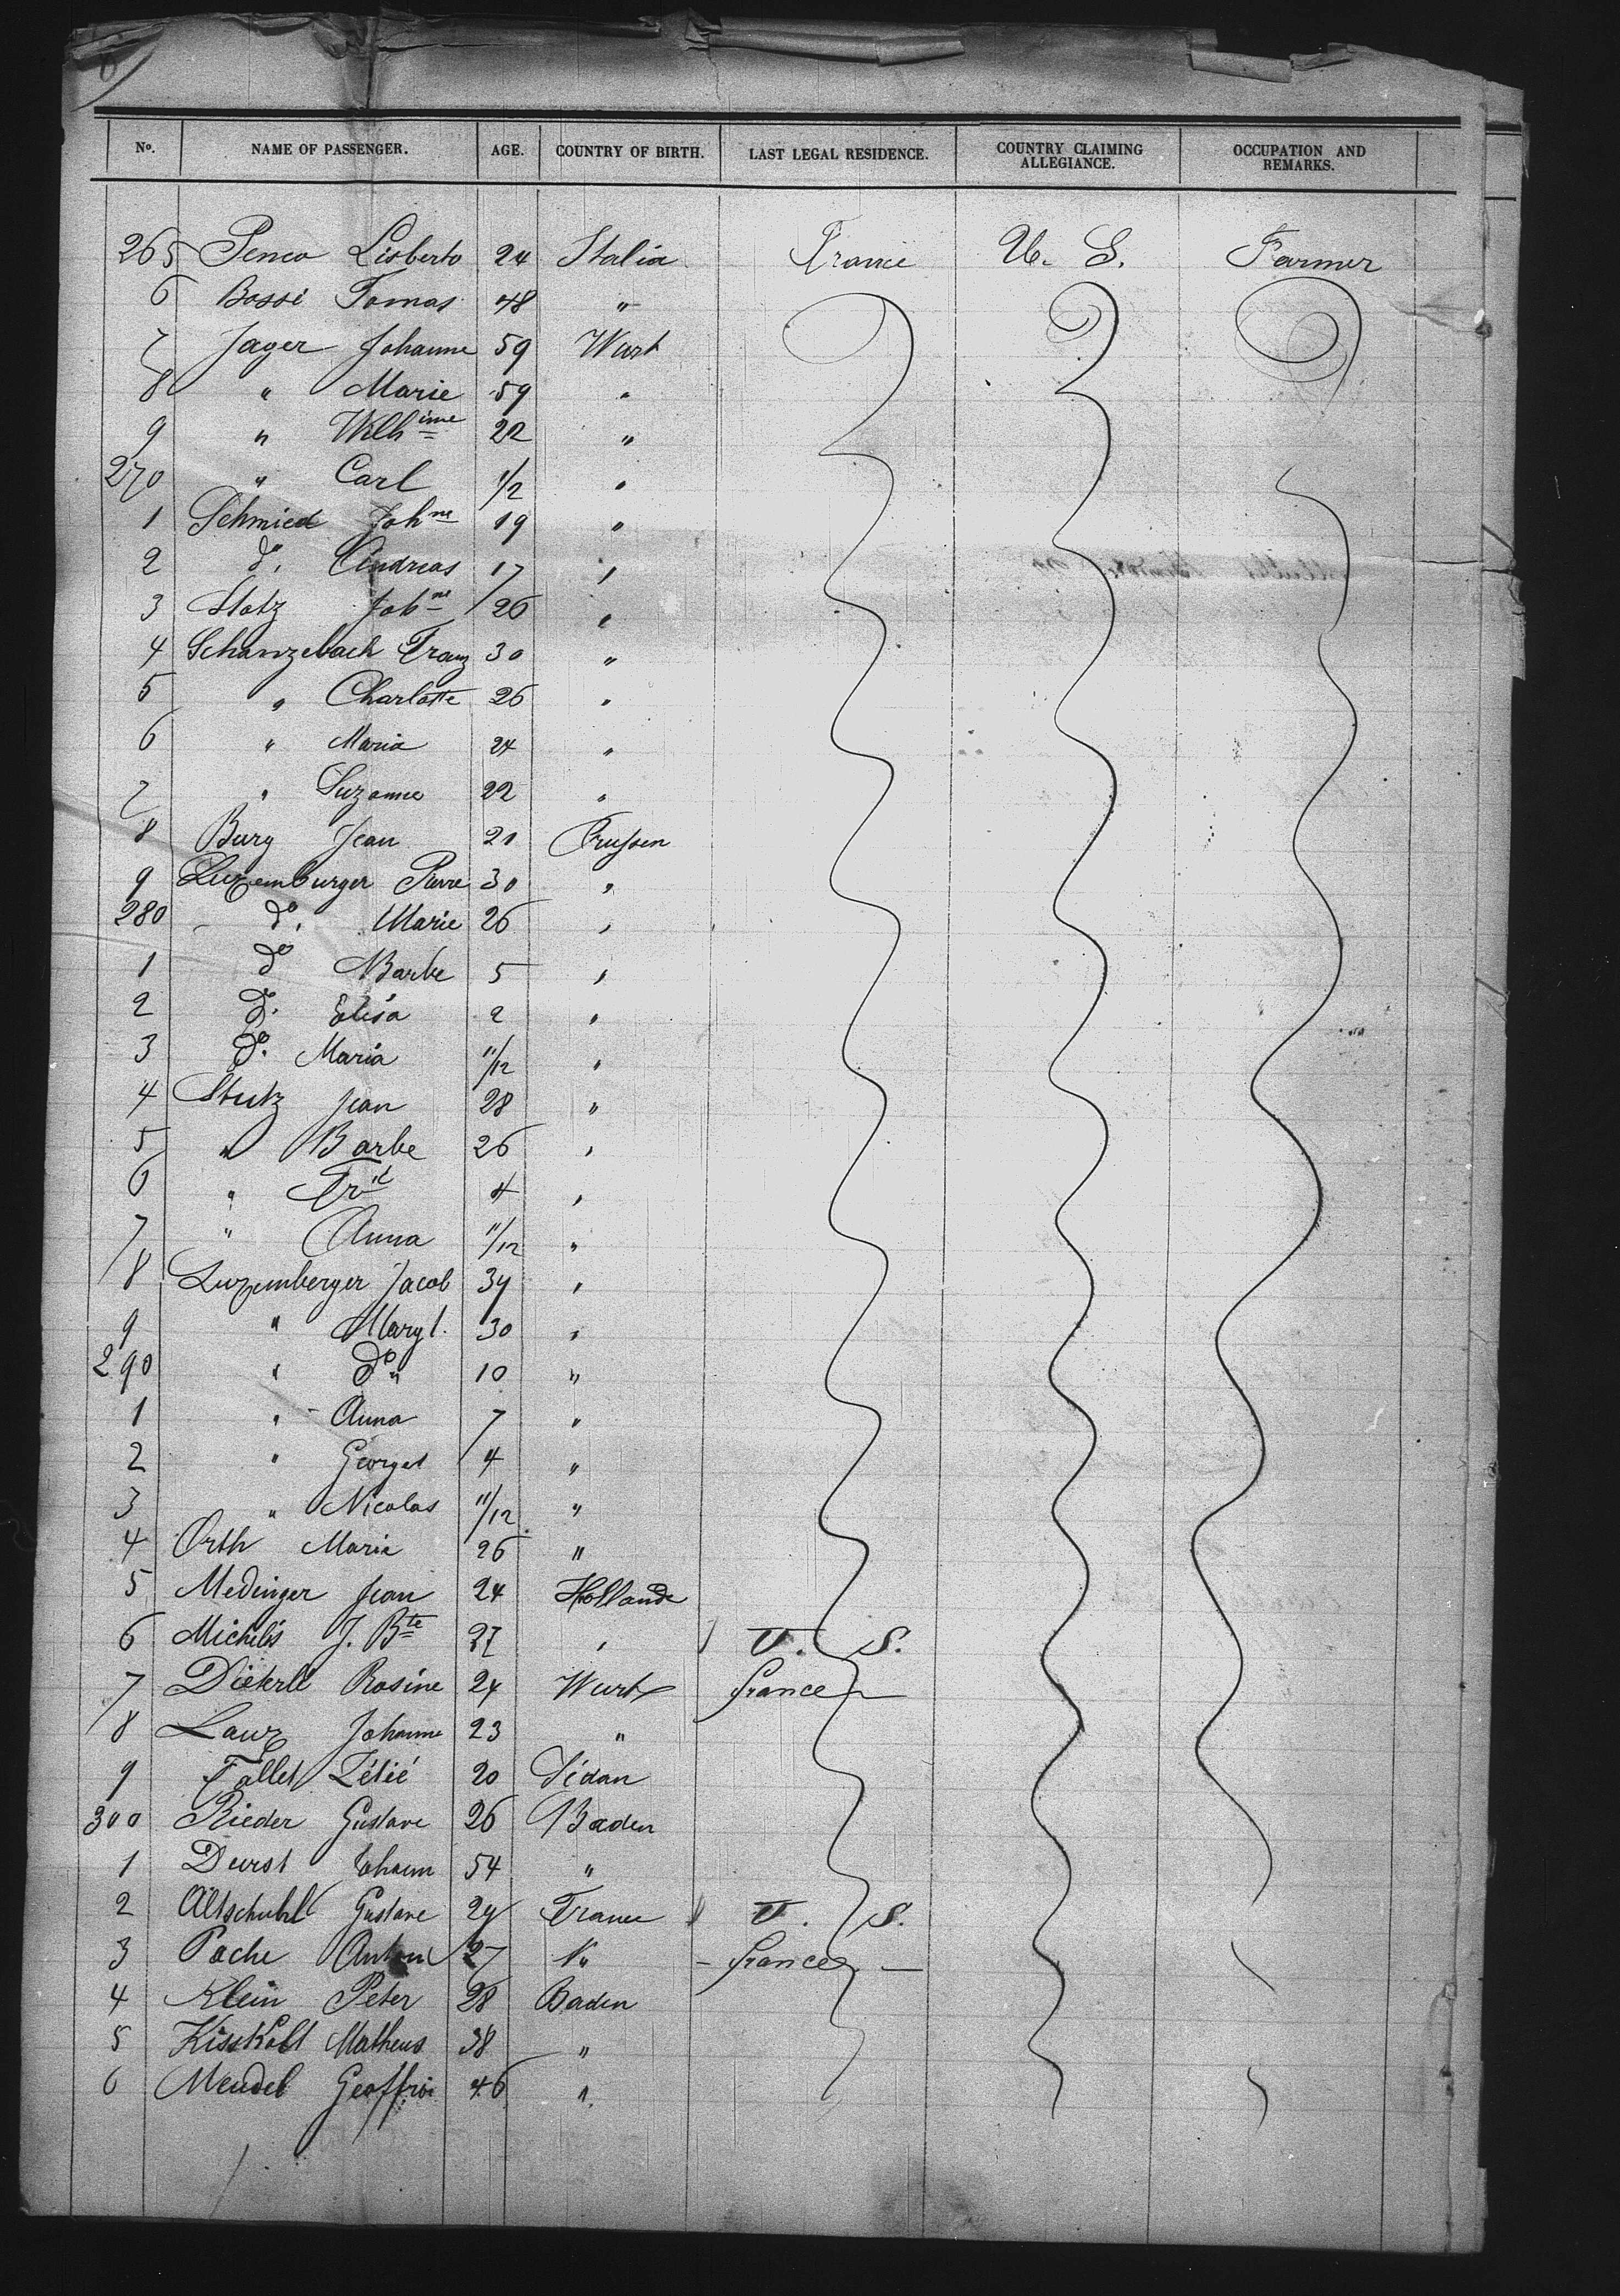 No. NAME OF PASSENGER. AGE. COUNTRY OF BIRTH. LAST LEGAL RESIDENCE. COUNTRY CLAIMING ALLEGIANCE. OCCUPATION AND REMARKS.
265 Penco Lisberto 24 Italia France U. S. Farmer
6 Bossi Tomas 48 "
7 Jager Johanne 59 Wurt
8 " Marie 59 "
9 " Wilhime 22 "
270 " Carl 1/2 "
1 Schmied Johne 19 "
2 do. Andreas 17 "
3 Stotz Johne 26 "
4 Schanzebach Franz 30 "
5 " Charlotte 26 "
6 " Maria 24 "
7 " Suzanne 22 "
8 Burg Jean 21 Prussen
9 Luxemburger Pierre 30 "
280 do. Marie 26 "
1 do Barbe 5 "
2 do. Elisa 2 "
3 do. Maria 11/12 "
4 Stutz Jean 28 "
5 " Barbe 26 "
6 " 4 "
7 " Anna 11/12 "
8 Luxemberger Jacob 34 "
9 " Margt. 30 "
290 " do " 10 "
1 " Anna 7 "
2 " Georges 4 "
3 " Nicolas 11/12 "
4 Orth Marie 26 "
5 Medinger Jean 24 Hollande
6 Michels J. Bte 27 " U. S.
7 Dieterle Rosine 24 Wurt France
8 Lauz Johanne 23 "
9 Fallet Zélié 20 Sédan
300 Rieder Gustave 26 Baden
1 Durst Johann 54 "
2 Altschuhl Gustave 24 France " U. S.
3 Poche Anton 27 " - France -
4 Klein Peter 28 Baden
5 Kisskalt Matheus 38 "
6 Mendel Geoffroi 46 "